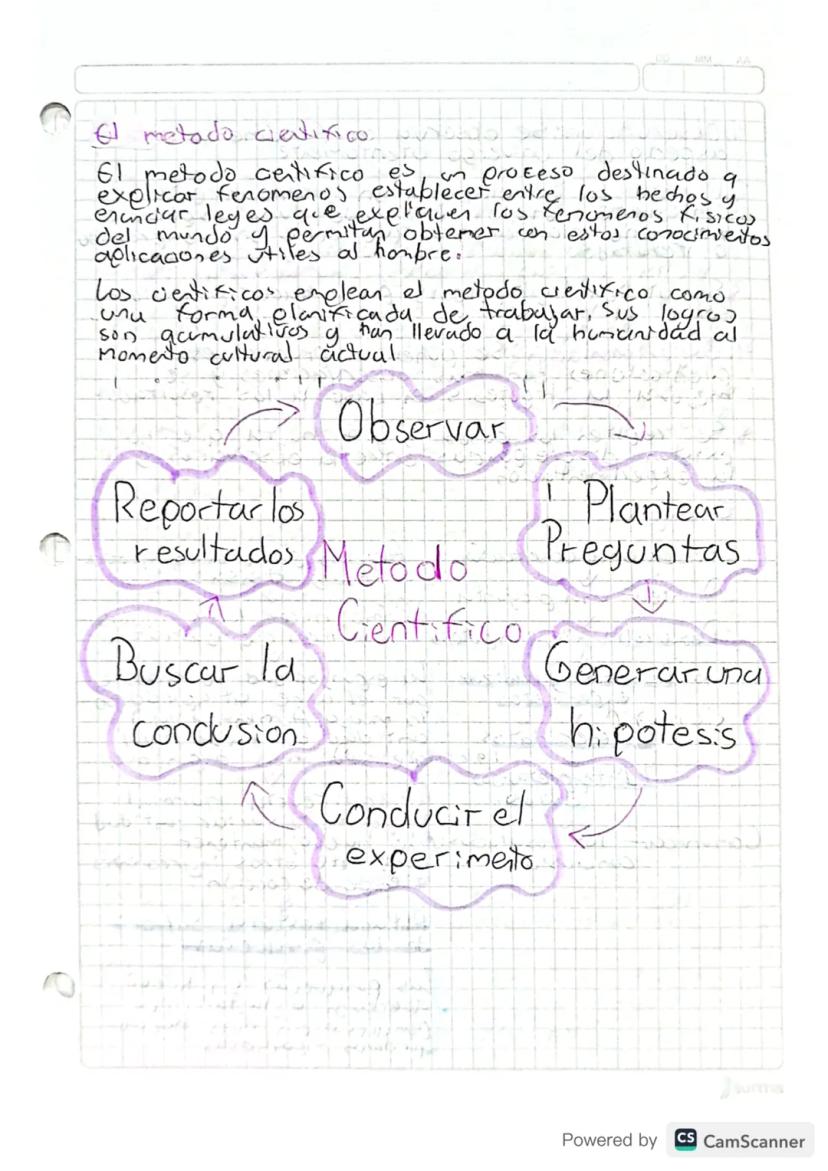 DD MM AA
El metodo cientifico
El metodo centifico es un proceso destinado a
explicar fenomenos establecer entre los hechos y
enunciar leyes que expliquen los fenomenos fisicos
del mundo y permitan obtener con estos conocimientos
aplicaciones utiles al honbre.
Los cientificos enplean el metodo cientifico como
una forma planificada de trabajar, sus logros
son acumulativos y han llevado a la humanidad al
momento cultural actual
Observar
Plantear
Preguntas
Generar una
hipotesis
Conducir el
experimento
Buscar la
conclusion
Reportar los
resultados
Metodo
Cientifico
Powered by CS CamScanner